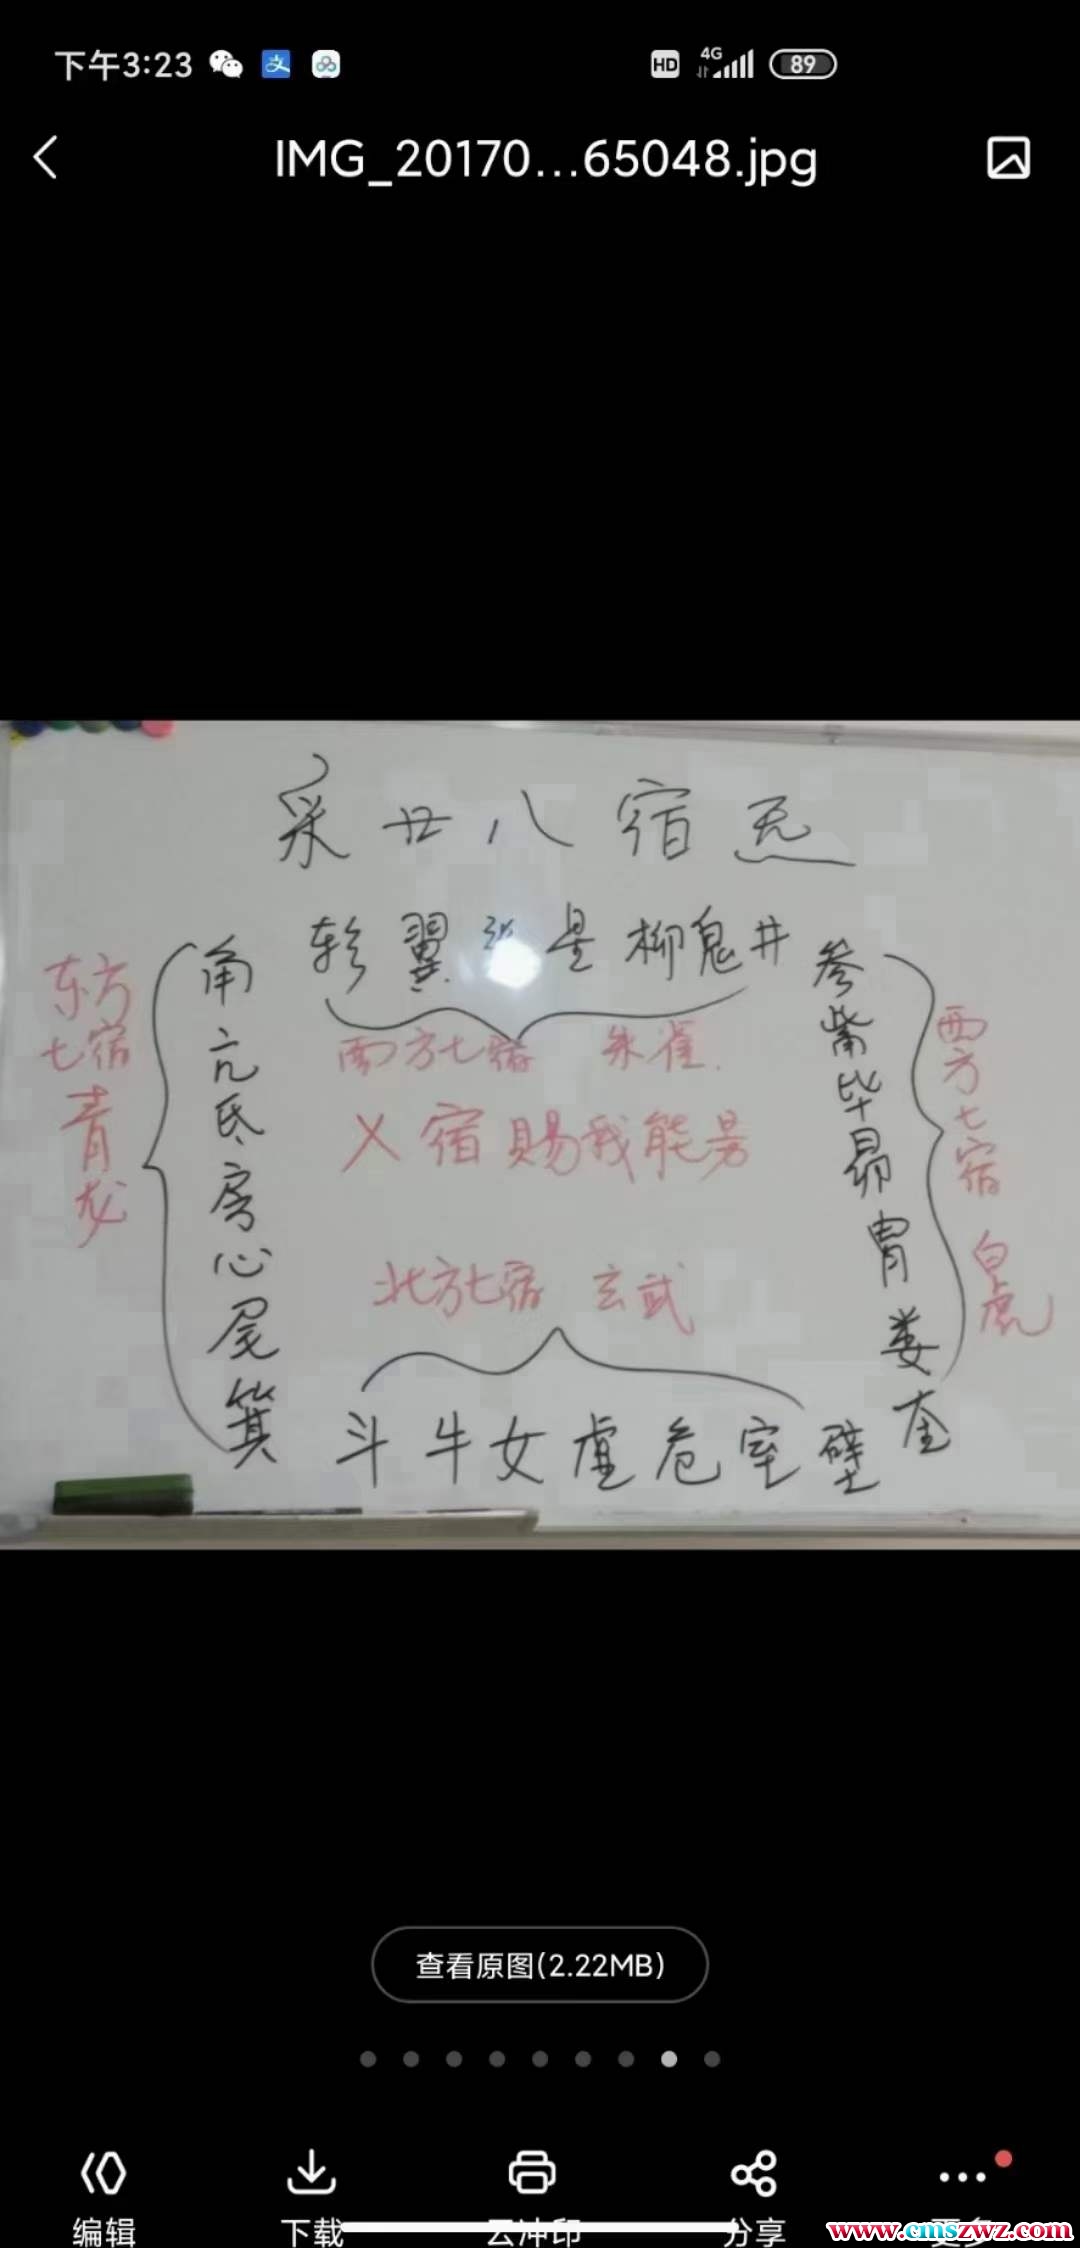 下午3:23 HD 4G 89
IMG_20170...65048.jpg
采廿八宿炁
轸翼张星柳鬼井
角亢氐房心尾箕
东方七宿青龙
南方七宿 朱雀
参觜毕昴胃娄奎
西方七宿 白虎
乂宿赐我能量
北方七宿 玄武
斗牛女虚危室壁
查看原图(2.22MB)
编辑 下载 云冲印 分享 更多
www.cmszwz.com